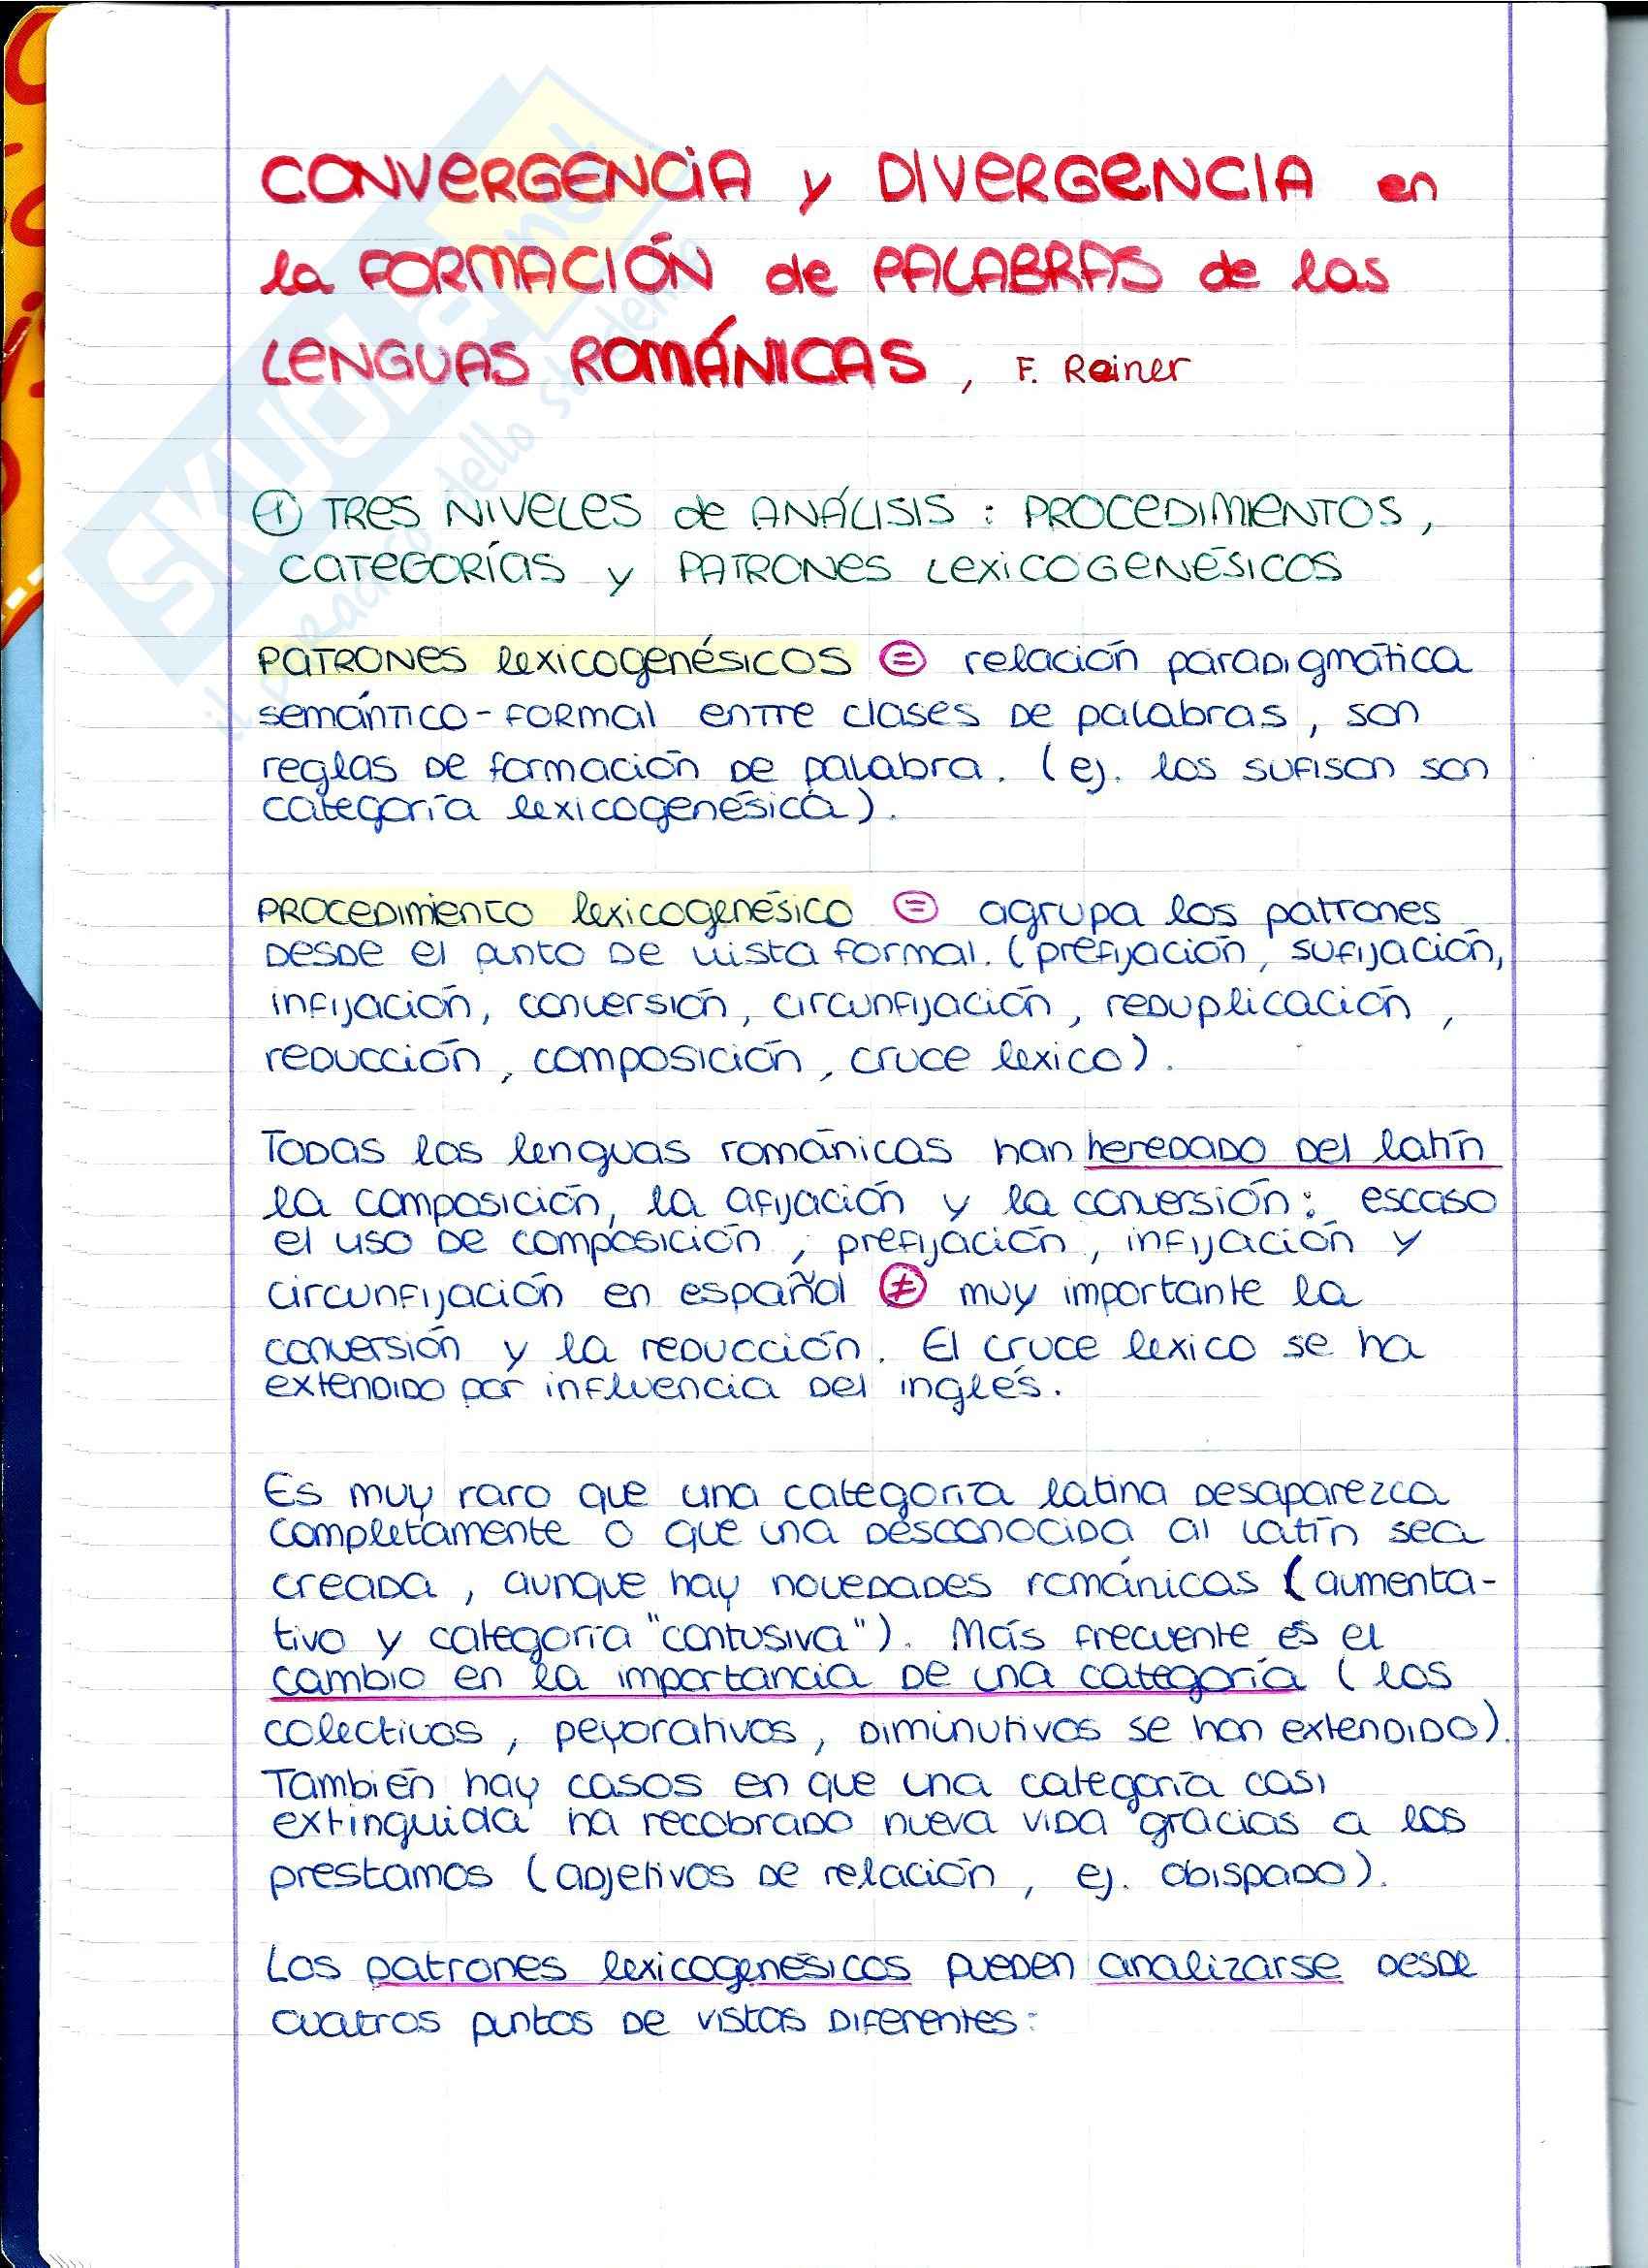 CONVERGENCIA y DIVERGENCIA en
la FORMACIÓN de PALABRAS de las
LENGUAS ROMÁNICAS, F. Reiner
① TRES NIVELES de ANÁLISIS: PROCEDIMIENTOS,
CATEGORÍAS y PATRONES LEXICOGENÉSICOS
PATRONES lexicogenésicos = relación paradigmática
semántico-formal entre clases de palabras, son
reglas de formación de palabra. (ej. los sufison son
categoría lexicogenésica).
PROCEDIMIENTO lexicogenésico = agrupa los patrones
desde el punto de vista formal. (prefijación, sufijación,
infijación, conversión, circunfijación, reduplicación,
reducción, composición, cruce lexico).
Todas las lenguas románicas han heredado del latín
la composición, la afijación y la conversión: escaso
el uso de composición, prefijación, infijación y
circunfijación en español ≠ muy importante la
conversión y la reducción. El cruce lexico se ha
extendido por influencia del inglés.
Es muy raro que una categoría latina desaparezca
completamente o que una desconocida al latín sea
creada, aunque hay novedades románicas (aumenta-
tivo y categoría "contusiva"). Más frecuente es el
cambio en la importancia de una categoría (los
colectivos, peyorativos, diminutivos se han extendido).
También hay casos en que una categoría casi
extinguida ha recobrado nueva vida gracias a los
prestamos (adjetivos de relación, ej. obispado).
Los patrones lexicogenésicos pueden analizarse desde
cuatros puntos de vistas diferentes:
SKUOLA.net
il paradiso dello studente